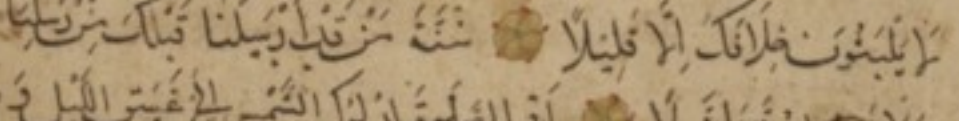 لا يَلْبَثُونَ خِلَافَكَ اِلَّا قَلِيلًا سُنَّةَ مَنْ قَدْ اَرْسَلْنَا قَبْلَكَ مِنْ رُسُلِنَا
اَقِمِ الصَّلٰوةَ لِدُلُوكِ الشَّمْسِ اِلٰى غَسَقِ الَّيْلِ وَ